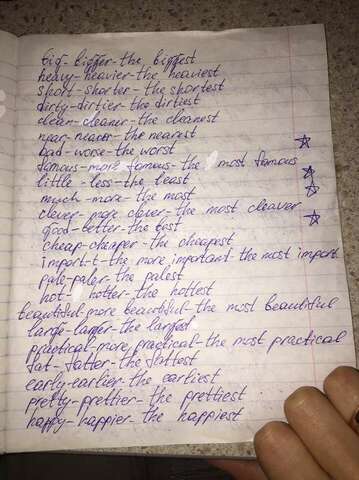 big-bigger-the biggest
heavy-heavier-the heaviest
short-shorter-the shortest
dirty-dirtier-the dirtiest
clean-cleaner-the cleanest
near-nearer-the nearest
bad-worse-the worst
famous-more famous-the most famous
little-less-the least
much-more-the most
clever-more claver-the most cleaver
good-better-the best
cheap-cheaper-the cheapest
import-t-the more important-the most import
pale-paler-the palest
hot-hotter-the hottest
beautiful-more beautiful-the most beautiful
large-larger-the largest
practical-more practical-the most practical
fat-fatter-the fattest
early-earlier-the earliest
pretty-prettier-the prettiest
happy-happier-the happiest